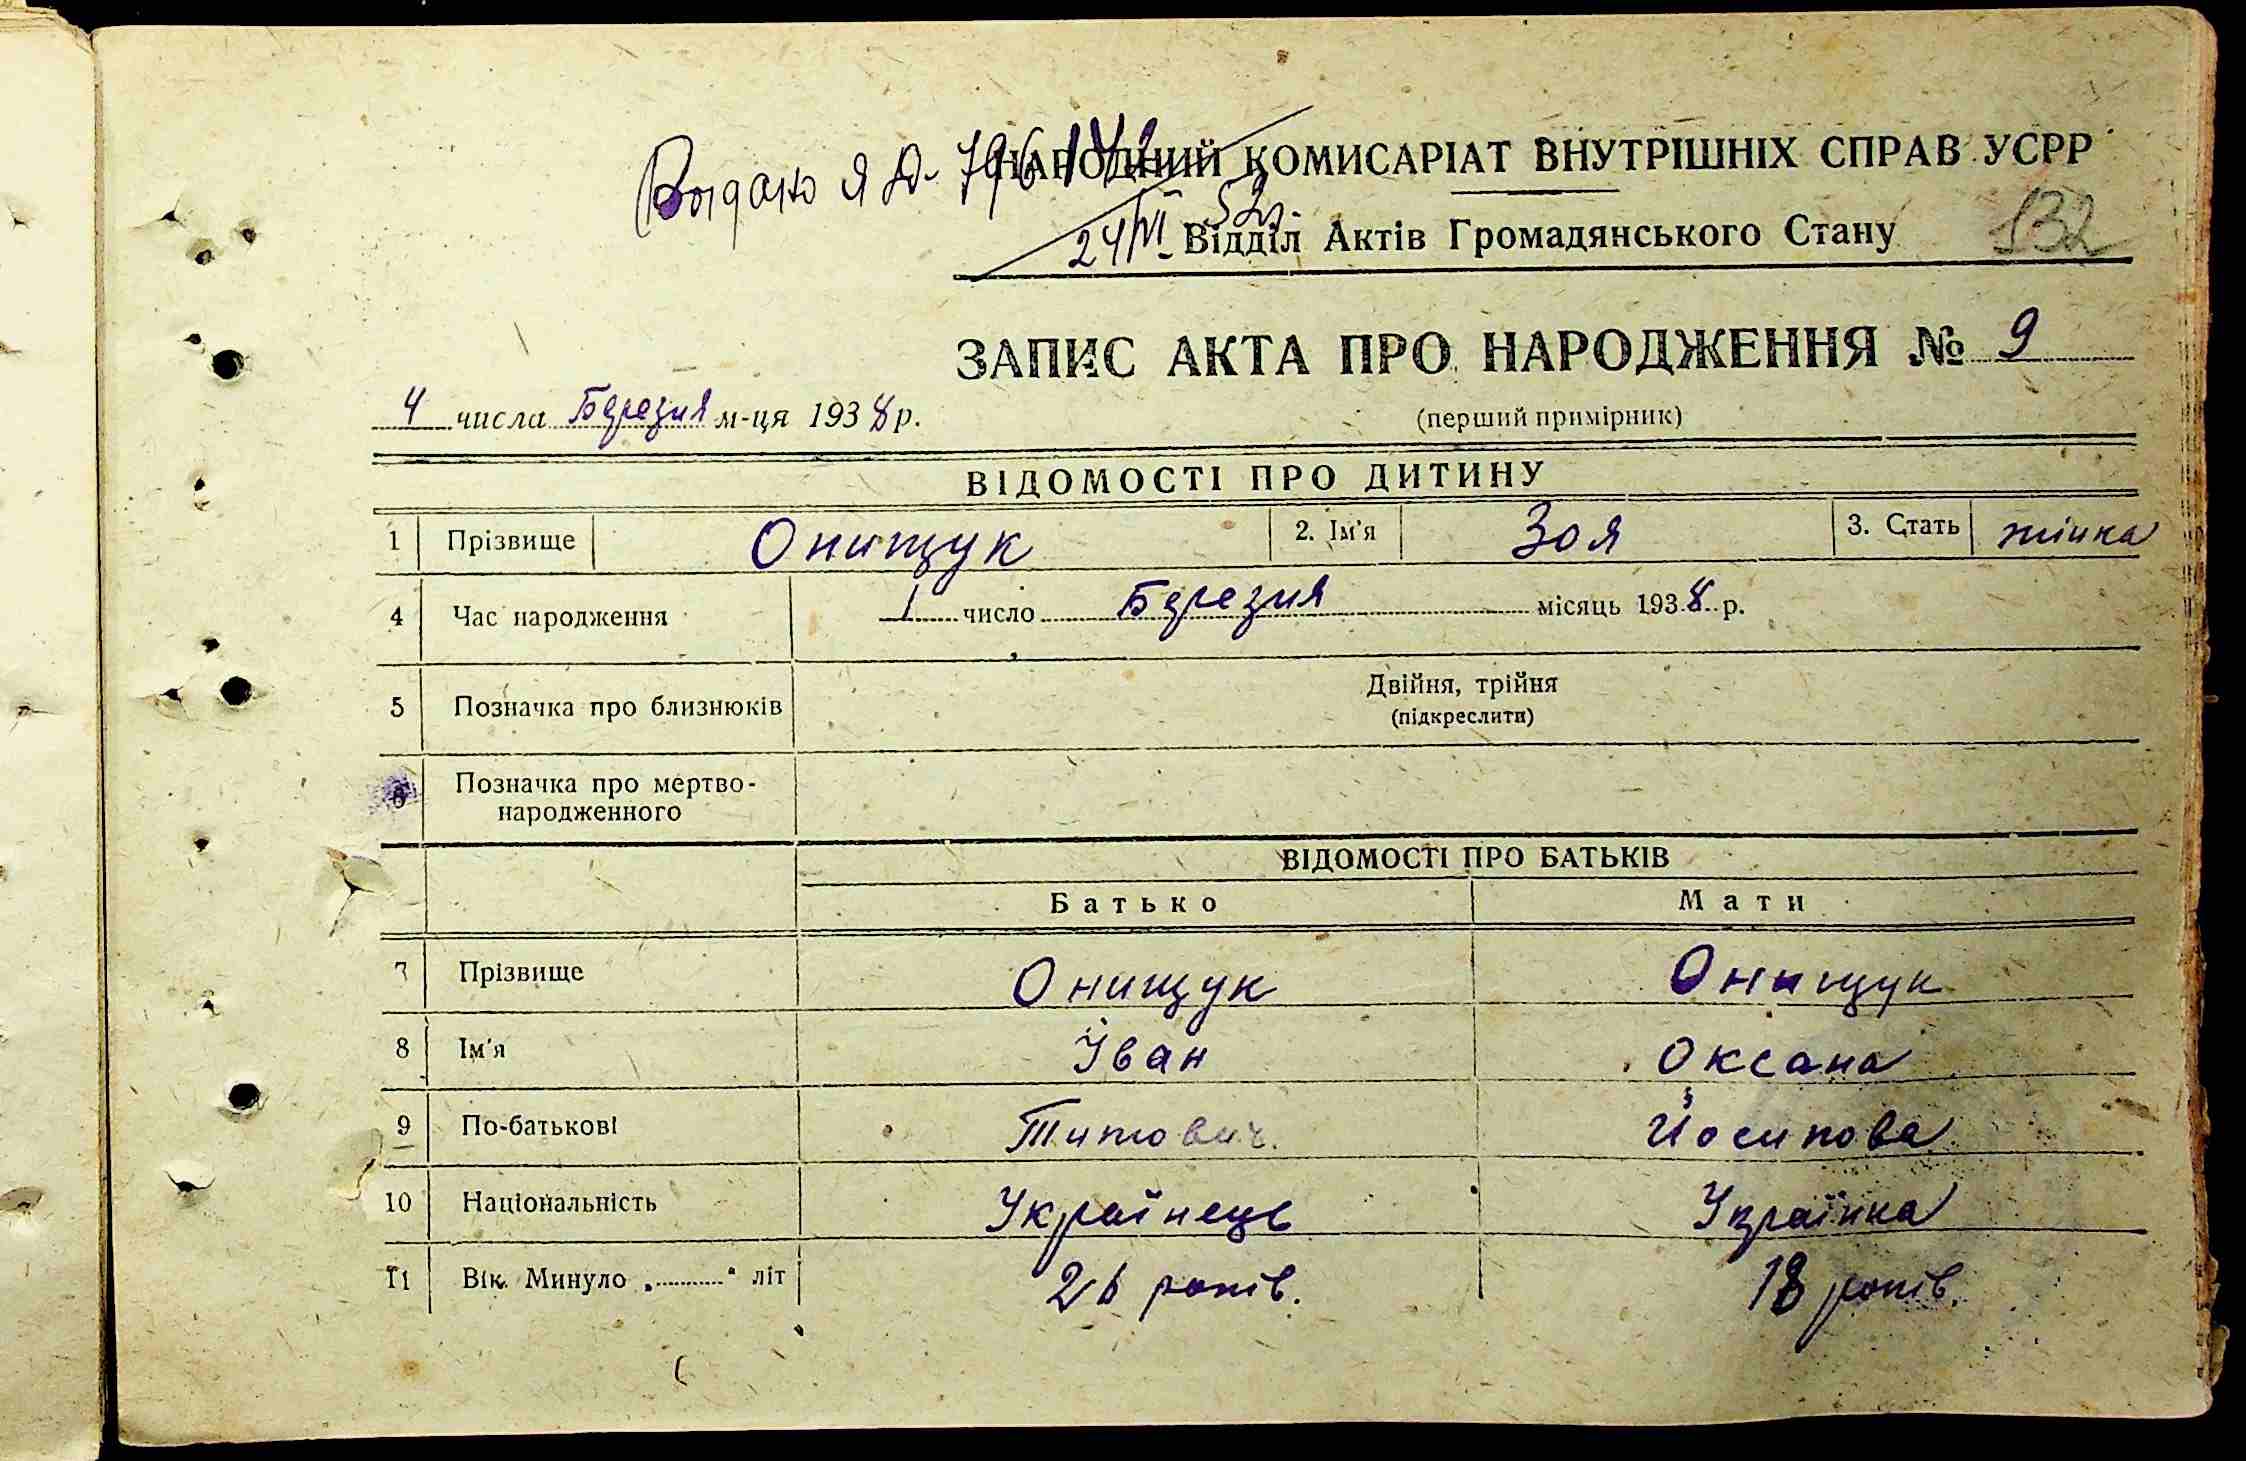 Выдано ЯД-
НАРОДНИЙ КОМИСАРІАТ ВНУТРІШНІХ СПРАВ УСРР
24/VI- 52г.
Відділ Актів Громадянського Стану 132
ЗАПИС АКТА ПРО НАРОДЖЕННЯ № 9
4 числа Березня м-ця 1938 р. (перший примірник)
ВІДОМОСТІ ПРО ДИТИНУ
1 Прізвище Онищук 2. Ім'я Зоя 3. Стать жінка
4 Час народження 1 число Березня місяць 1938 р.
5 Позначка про близнюків Двійня, трійня
(підкреслити)
6 Позначка про мертво-
народженного
ВІДОМОСТІ ПРО БАТЬКІВ
Батько Мати
7 Прізвище Онищук Онищук
8 Ім'я Іван Оксана
9 По-батькові Титович. Йосипова
10 Національність Українець Українка
11 Вік. Минуло „..........“ літ 26 років. 18 років.